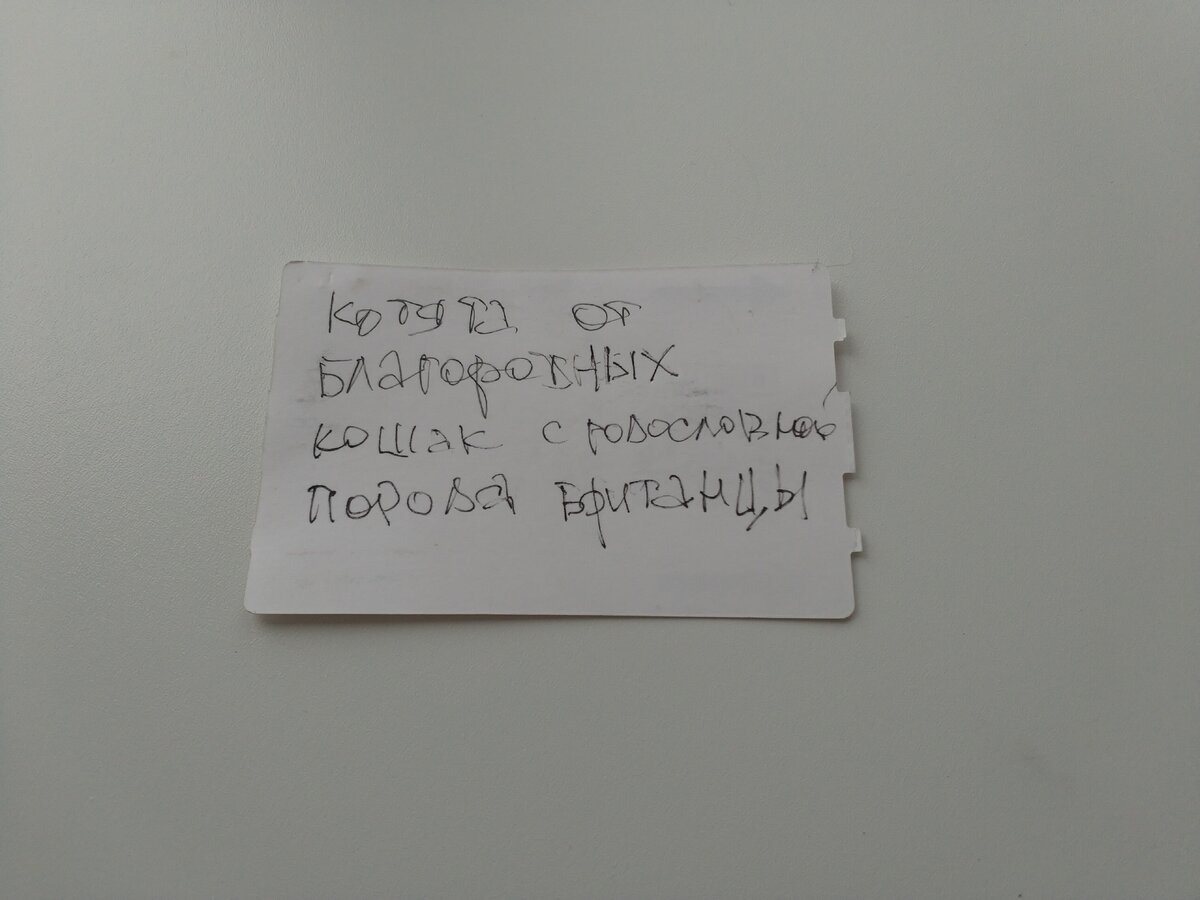 котята от
благородных
кошак с родословной
порода британцы